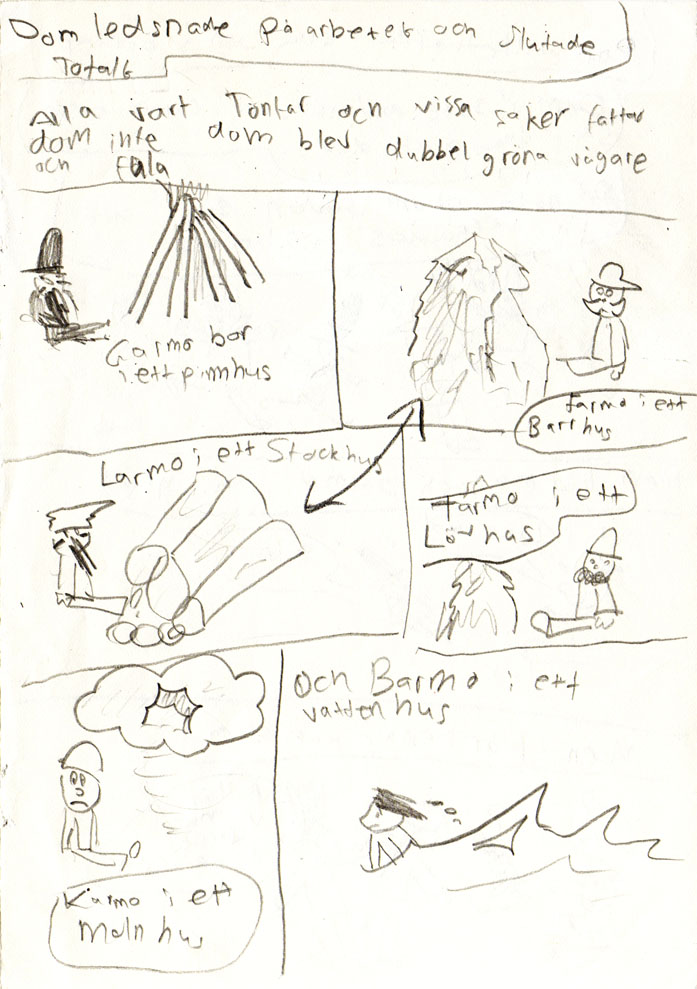 Dom ledsnade på arbetet och slutade
Totalt
Alla vart Tontar och vissa saker fattar
dom inte dom blev dubbel gröna vågare
och fula
Garmo bor
i ett pinnhus
farmo i ett
Barrhus
Larmo i ett Stockhus
Tarmo i ett
Lövhus
och Barmo i ett
vatten hus
Karmo i ett
Moln hus